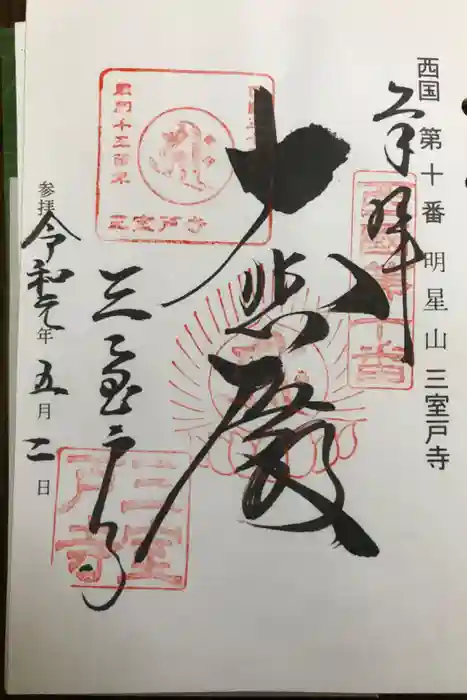 西国 第十番 明星山 三室戸寺
奉拝
西国第十番
大悲殿
三室戸寺
三室戸寺
三室戸寺
参拝 令和元年五月二日